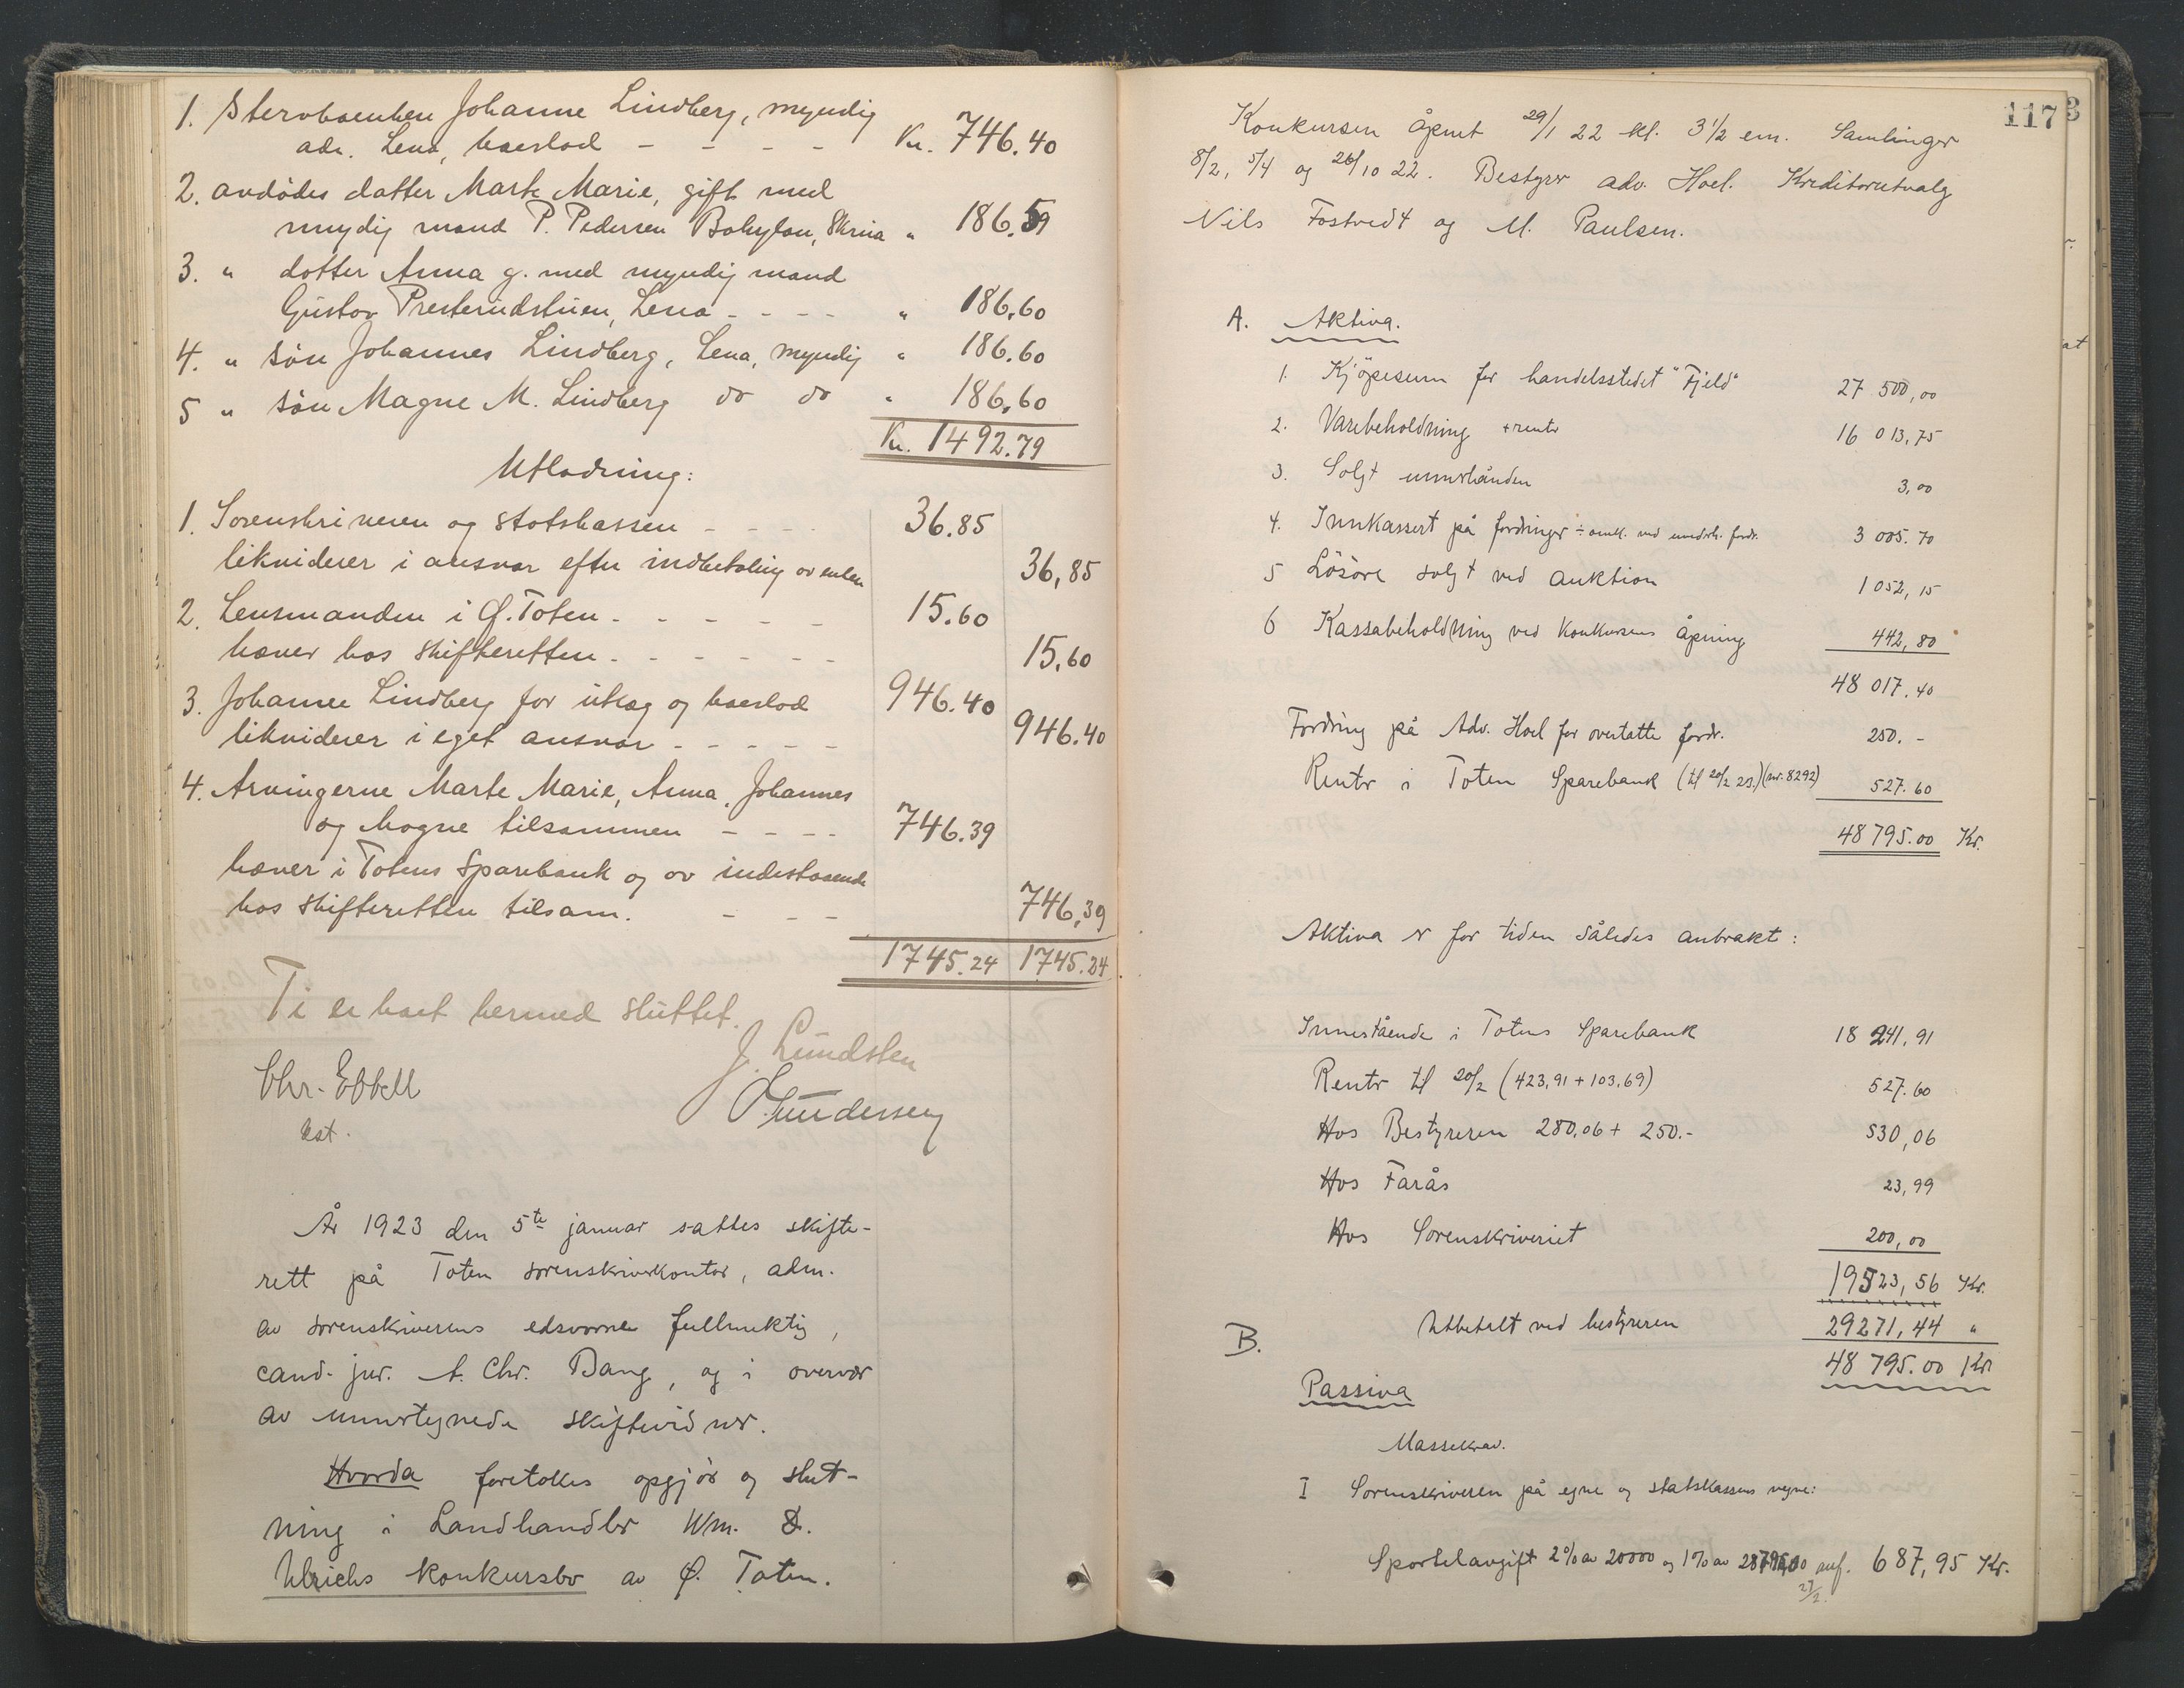 1. Stervboenken Johanne Lindberg, myndig
adr. Lena, boeslod - - - - Kr. 746.40
2. avdödes datter Marte Marie, gift med
myndig mand P. Pedersen Babylon, Skreia " 186.59
3. " dotter Anna g. med myndig mand
Gustav Presterudstuen, Lena - - - - " 186.60
4. " sön Johannes Lindberg, Lena, myndig " 186.60
5 " sön Magne M. Lindberg do do " 186.60
Kr. 1492.79
Utlodning:
1. Sorenskriveren og statskassen - - - - 36.85
likviderer i ansvar efter indbetaling av enken 36,85
2. Lensmanden i Ø. Toten - - - - - 15.60
hæver hos skifteretten - - - - - - 15.60
3. Johanne Lindberg for utlæg og boeslod 946.40
likviderer i eget ansvar - - - - - 946.40
4. Arvingerne Marte Marie, Anna, Johannes
og Mogne tilsammen - - - - 746.39
hæver i Totens Sparebank og av indestaaende
hos skifteretten tilsam. - - - 746,39
1745.24 1745.24
Ti er boet hermed sluttet.
J. Lundsten
Chr. Ebbell
kst.
O. Gundersen
År 1923 den 5te januar sattes skifte-
rett på Toten sorenskriverkontor, adm.
av sorenskriverens edsvorne fullmektig,
cand. jur. A. Chr. Bang, og i overvær
av unnertegnede skiftevidner.
Hvorda foretokes opgjör og slut-
ning i Landhandler Wm. &.
Ulrichs konkursbo av Ø. Toten.
117
3
Konkursen åpnet 29/1 22 kl. 3 1/2 em. Samlinger
8/2, 5/4 og 26/10 22. Bestyrer adv. Hoel. Kreditorutvalg
Nils Fostvedt og M. Paulsen.
A. Aktiva.
1. Kjöpesum for handelsstedet "Fjeld" 27 500,00
2. Varebeholdning + renter 16 013,75
3. Solgt unnerhånden 3,00
4. Innkassert på fordringer ÷ omk. ved underh. fordr. 3 005.70
5 Lösöre solgt ved auktion 1 052,15
6 Kassabeholdning ved Konkursens åpning 442,80
48 017.40
Fordring på Adv. Hoel for overtatte fordr. 250.-
Renter i Toten Sparebank (til 20/2 23.) (nr. 8292) 527.60
48 795.00 Kr.
Aktiva er for tiden således anbrakt:
Innestående i Totens Sparebank 18 241,91
Renter til 20/2 (423,91 + 103,69) 527.60
Hos Bestyreren 280,06 + 250.- 530,06
Hos Farås 23,99
Hos Sorenskriveriet 200,00
19523,56 Kr.
Utbetalt ved bestyreren 29271,44 "
48 795.00 Kr
B.
Passiva
Massekrav.
I Sorenskriveren på egne og statskassens vegne:
Sportelavgift 2% av 20000 og 1% av 28795,00 auf. 687,95 Kr.